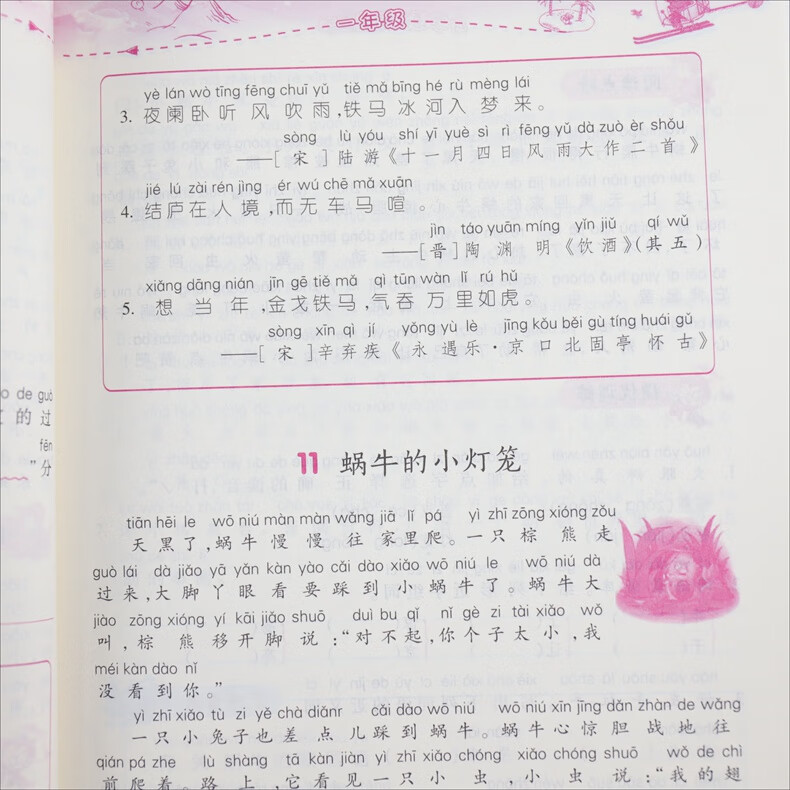 一年级
yè lán wò tīng fēng chuī yǔ tiě mǎ bīng hé rù mèng lái
3. 夜阑卧听风吹雨,铁马冰河入梦来。
sòng lù yóu shí yī yuè sì rì fēng yǔ dà zuò èr shǒu
——[宋]陆游《十一月四日风雨大作二首》
jié lú zài rén jìng ér wú chē mǎ xuān
4. 结庐在人境,而无车马喧。
jìn táo yuān míng yǐn jiǔ qí wǔ
——[晋]陶渊明《饮酒》(其五)
xiǎng dāng nián jīn gē tiě mǎ qì tūn wàn lǐ rú hǔ
5. 想当年,金戈铁马,气吞万里如虎。
sòng xīn qì jí yǒng yù lè jīng kǒu běi gù tíng huái gǔ
——[宋]辛弃疾《永遇乐·京口北固亭怀古》
de guò
的过
fēn
”分
11 蜗牛的小灯笼
tiān hēi le wō niú màn màn wǎng jiā lǐ pá yì zhī zōng xióng zǒu
天黑了,蜗牛慢慢往家里爬。一只棕熊走
guò lái dà jiǎo yā yǎn kàn yào cǎi dào xiǎo wō niú le wō niú dà
过来,大脚丫眼看要踩到小蜗牛了。蜗牛大
jiào zōng xióng yí kāi jiǎo shuō duì bu qǐ nǐ gè zi tài xiǎo wǒ
叫,棕熊移开脚说:“对不起,你个子太小,我
méi kàn dào nǐ
没看到你。”
yì zhī xiǎo tù zi yě chà diǎnr cǎi dào wō niú wō niú xīn jīng dǎn zhàn de wǎng
一只小兔子也差点儿踩到蜗牛。蜗牛心惊胆战地往
qián pá zhe lù shàng tā kàn jiàn yì zhī xiǎo chóng xiǎo chóng shuō wǒ de chì
前爬着。路上,它看见一只小虫,小虫说:“我的翅